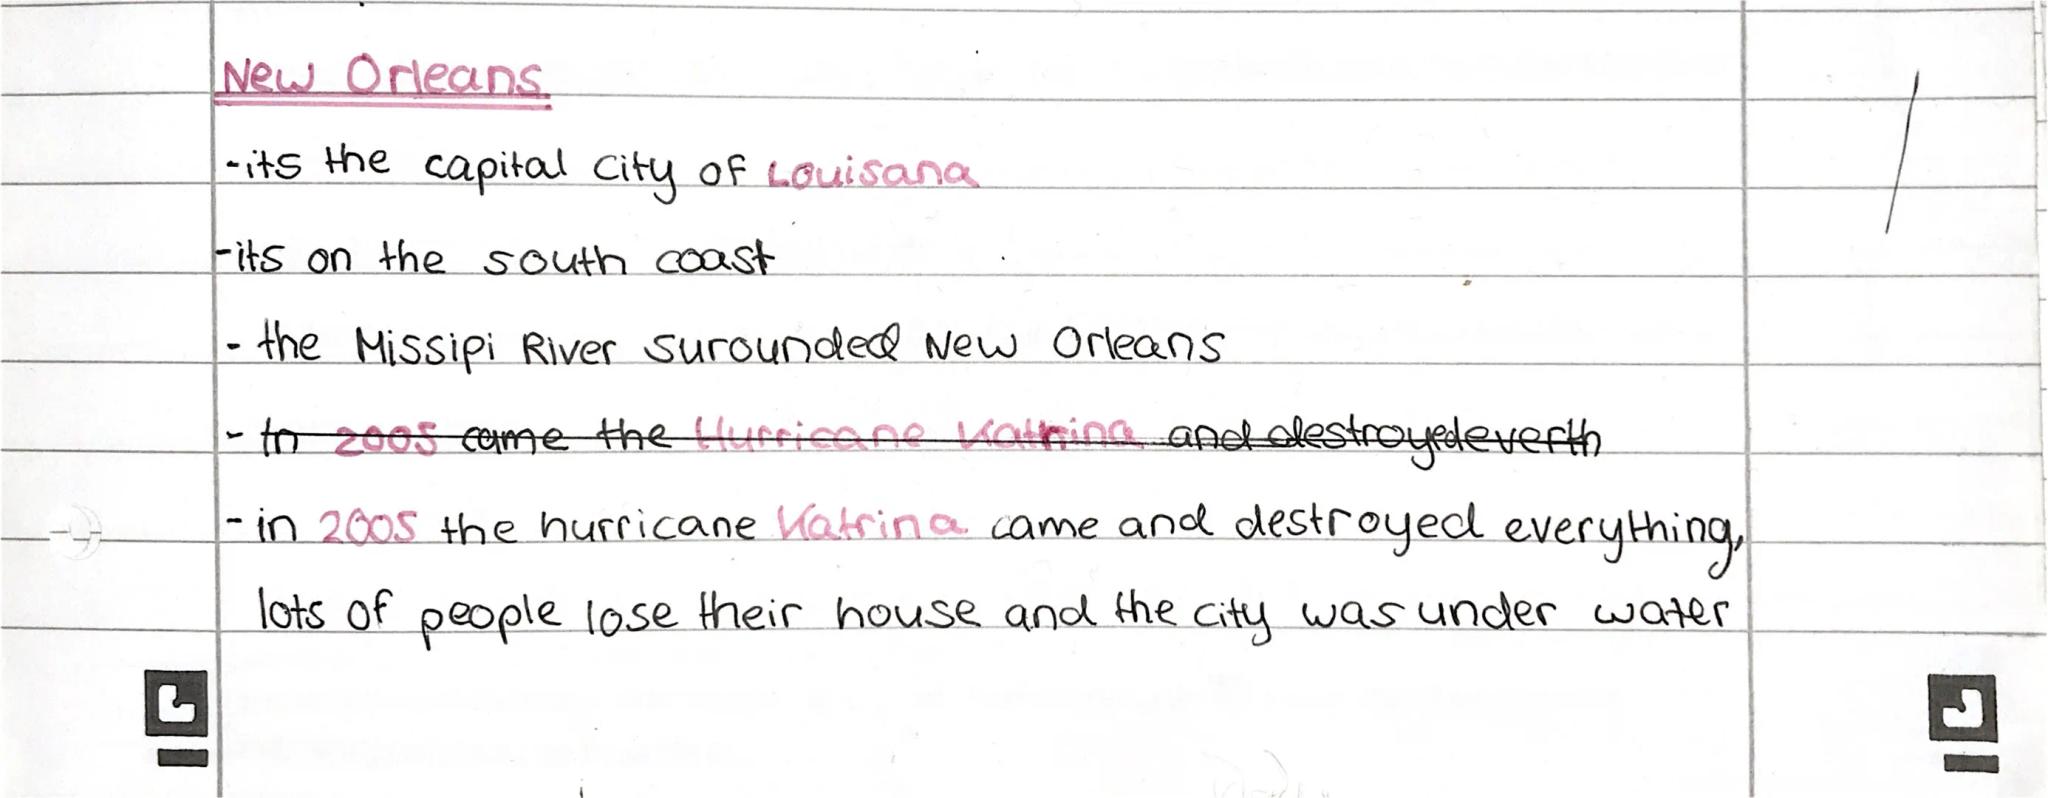 New Orleans
-its the capital city of Louisana
-its on the south coast
- the Missipi River surounded New Orleans
- In 2005 came the Hurricane Katrina and destroyedeverth
- in 2005 the hurricane Katrina came and destroyed everything,
lots of people lose their house and the city was under water